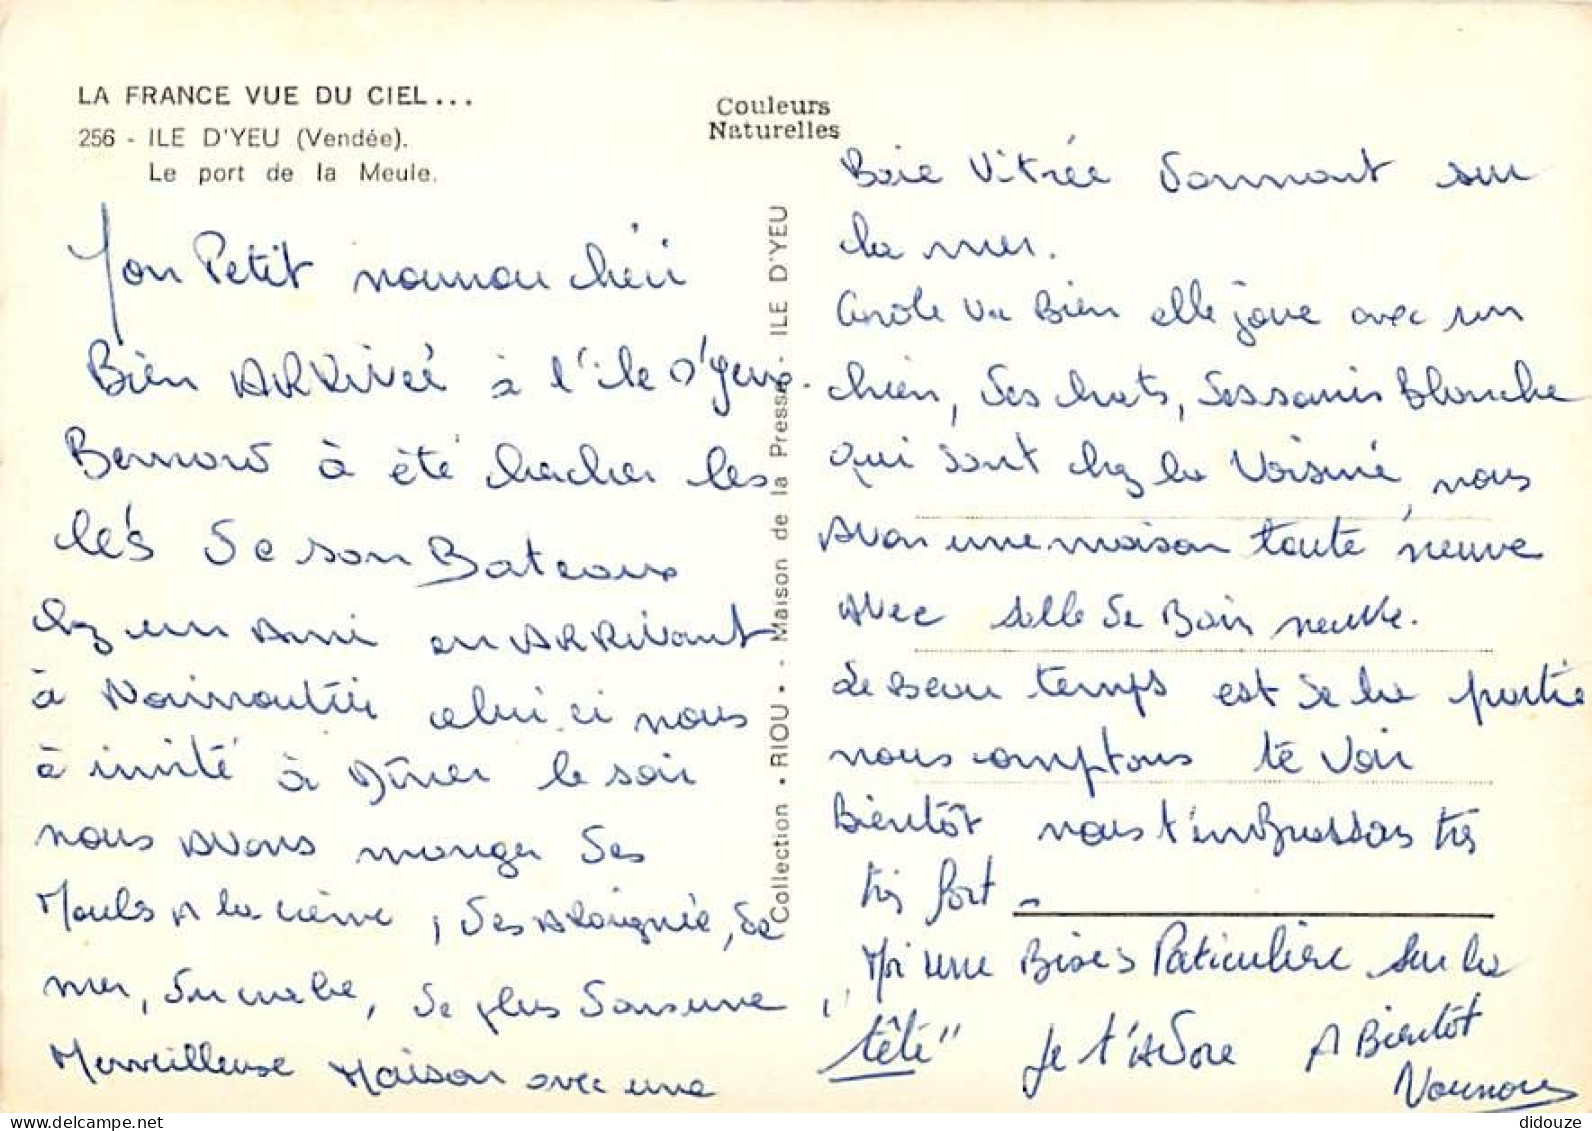 LA FRANCE VUE DU CIEL...
256 - ILE D'YEU (Vendée).
Le port de la Meule.
Couleurs
Naturelles
Collection • RIOU • - Maison de la Presse - ILE D'YEU
Mon Petit nounou chéri
Bien ARRivée à l'ile D'yeux.
Bernard à été chercher les
clés de son Bateaux
chez un Ami en ARRivant
à Noirmoutier celui ci nous
à invité à Dîner le soir
nous avons manger des
Mouls a la crème, des ARaignée, de
mer, du crabe, de plus dans une
Merveilleuse Maison avec une
Baie Vitrée donnant sur
la mer.
Carole va Bien elle joue avec un
chien, des chats, des souris Blanche
qui sont chez la Voisine, nous
avon une maison toute neuve
avec salle de Bain neuve.
Le Beau temps est de la partie
nous comptons te voir
Bientôt nous t'emBrassons très
très fort -
Moi une Bises Paticulière sur la
"têtê" Je t'Adore A Bientôt
Nounou
didouze